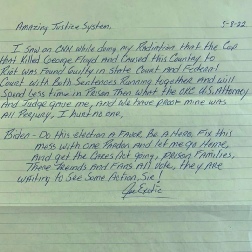 Amazing Justice System. 5-8-22
I saw on CNN while doing my Radiation that the Cop
that Killed George Floyd and Caused this Country to
Riot was Found Guilty in State Court and Federal
Court with Both Sentences Running together and will
Spend less time in Prison Than what the OKC U.S. Attorney
And Judge gave me, And we have proof mine was
All Perjury, I hurt no one,
Biden - Do this election A Favor, Be A Hero, Fix this
mess with one Pardon And let me go Home,
And get the Gays Vote going, prison Families,
These Friends and Fans All Vote, they ARE
waiting to See Some Action, Sir!
Joe Exotic